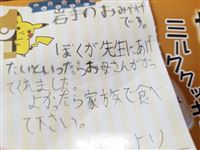 岩手のおみやげ
です。
ぼくが先生にあげ
たいといったらお母さんがかっ
てくれました。
よかったら家族で食べ
て下さい。
より
ミルククッキー